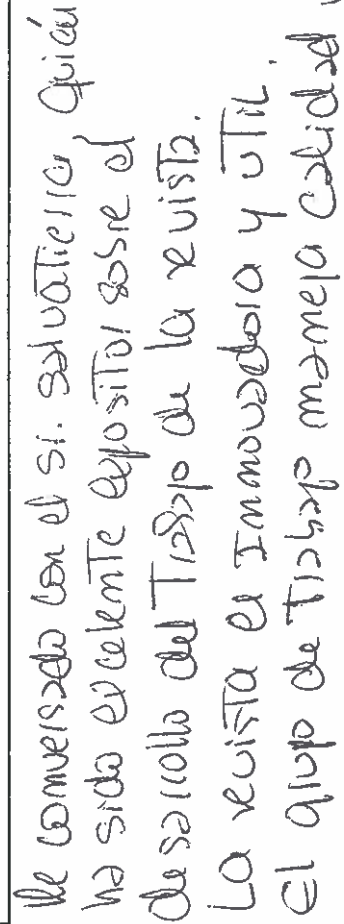 He conversado con el sr. Salvatierra, quién
ha sido excelente expositor sobre el
desarrollo del Trabajo de la revista.
La revista es Innovadora y util.
El grupo de Trabajo maneja calidad y